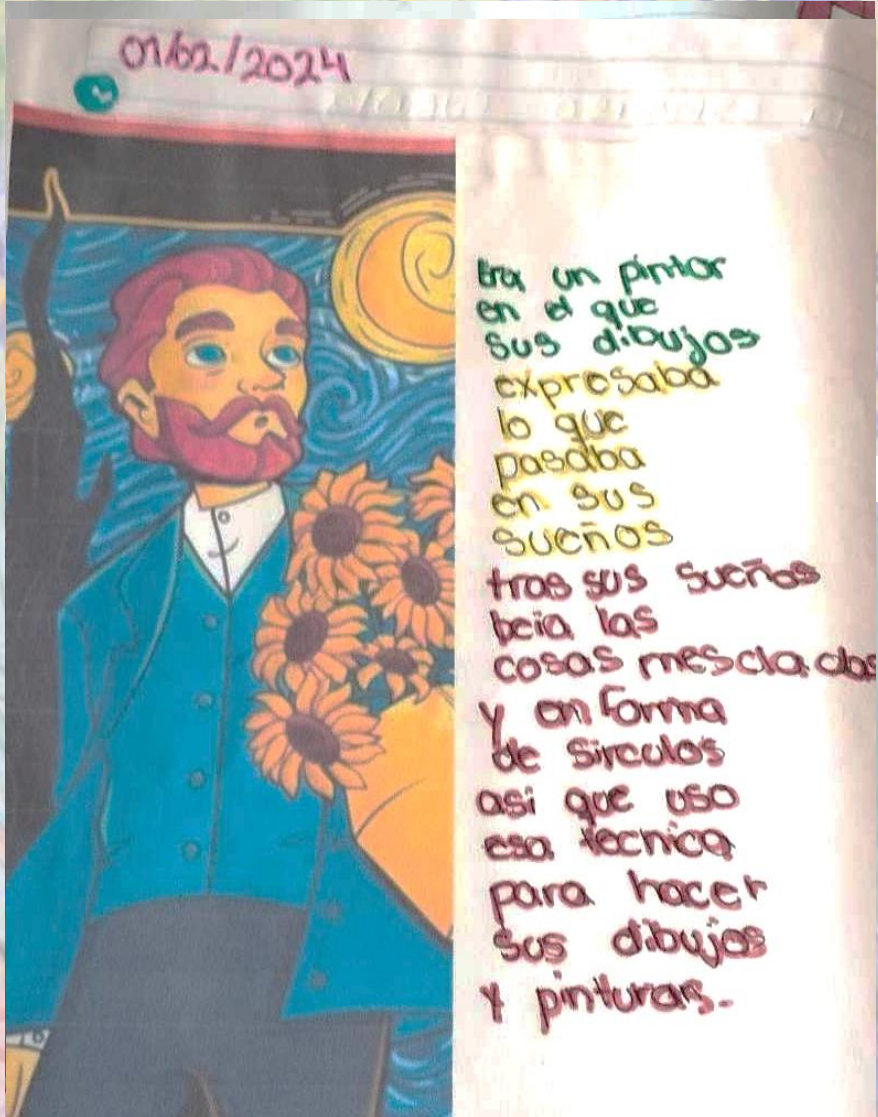 01/02/2024
Era un pintor
en el que
sus dibujos
expresaba
lo que
pasaba
en sus
sueños
tras sus sueños
beia las
cosas mescladas
y en forma
de sirculos
asi que uso
esa tecnica
para hacer
sus dibujos
y pinturas.